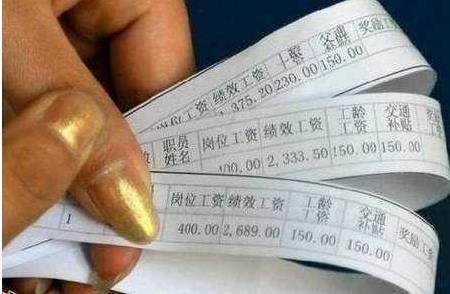 岗位工资 绩效工资 工龄工资 交通补贴 奖励
375.20 230.00 150.00
职员姓名 岗位工资 绩效工资 工龄工资 交通补贴
400.00 2,333.50 150.00 150.00
岗位工资 绩效工资 工龄工资 交通补贴 奖励工
1 400.00 2,689.00 150.00 150.00